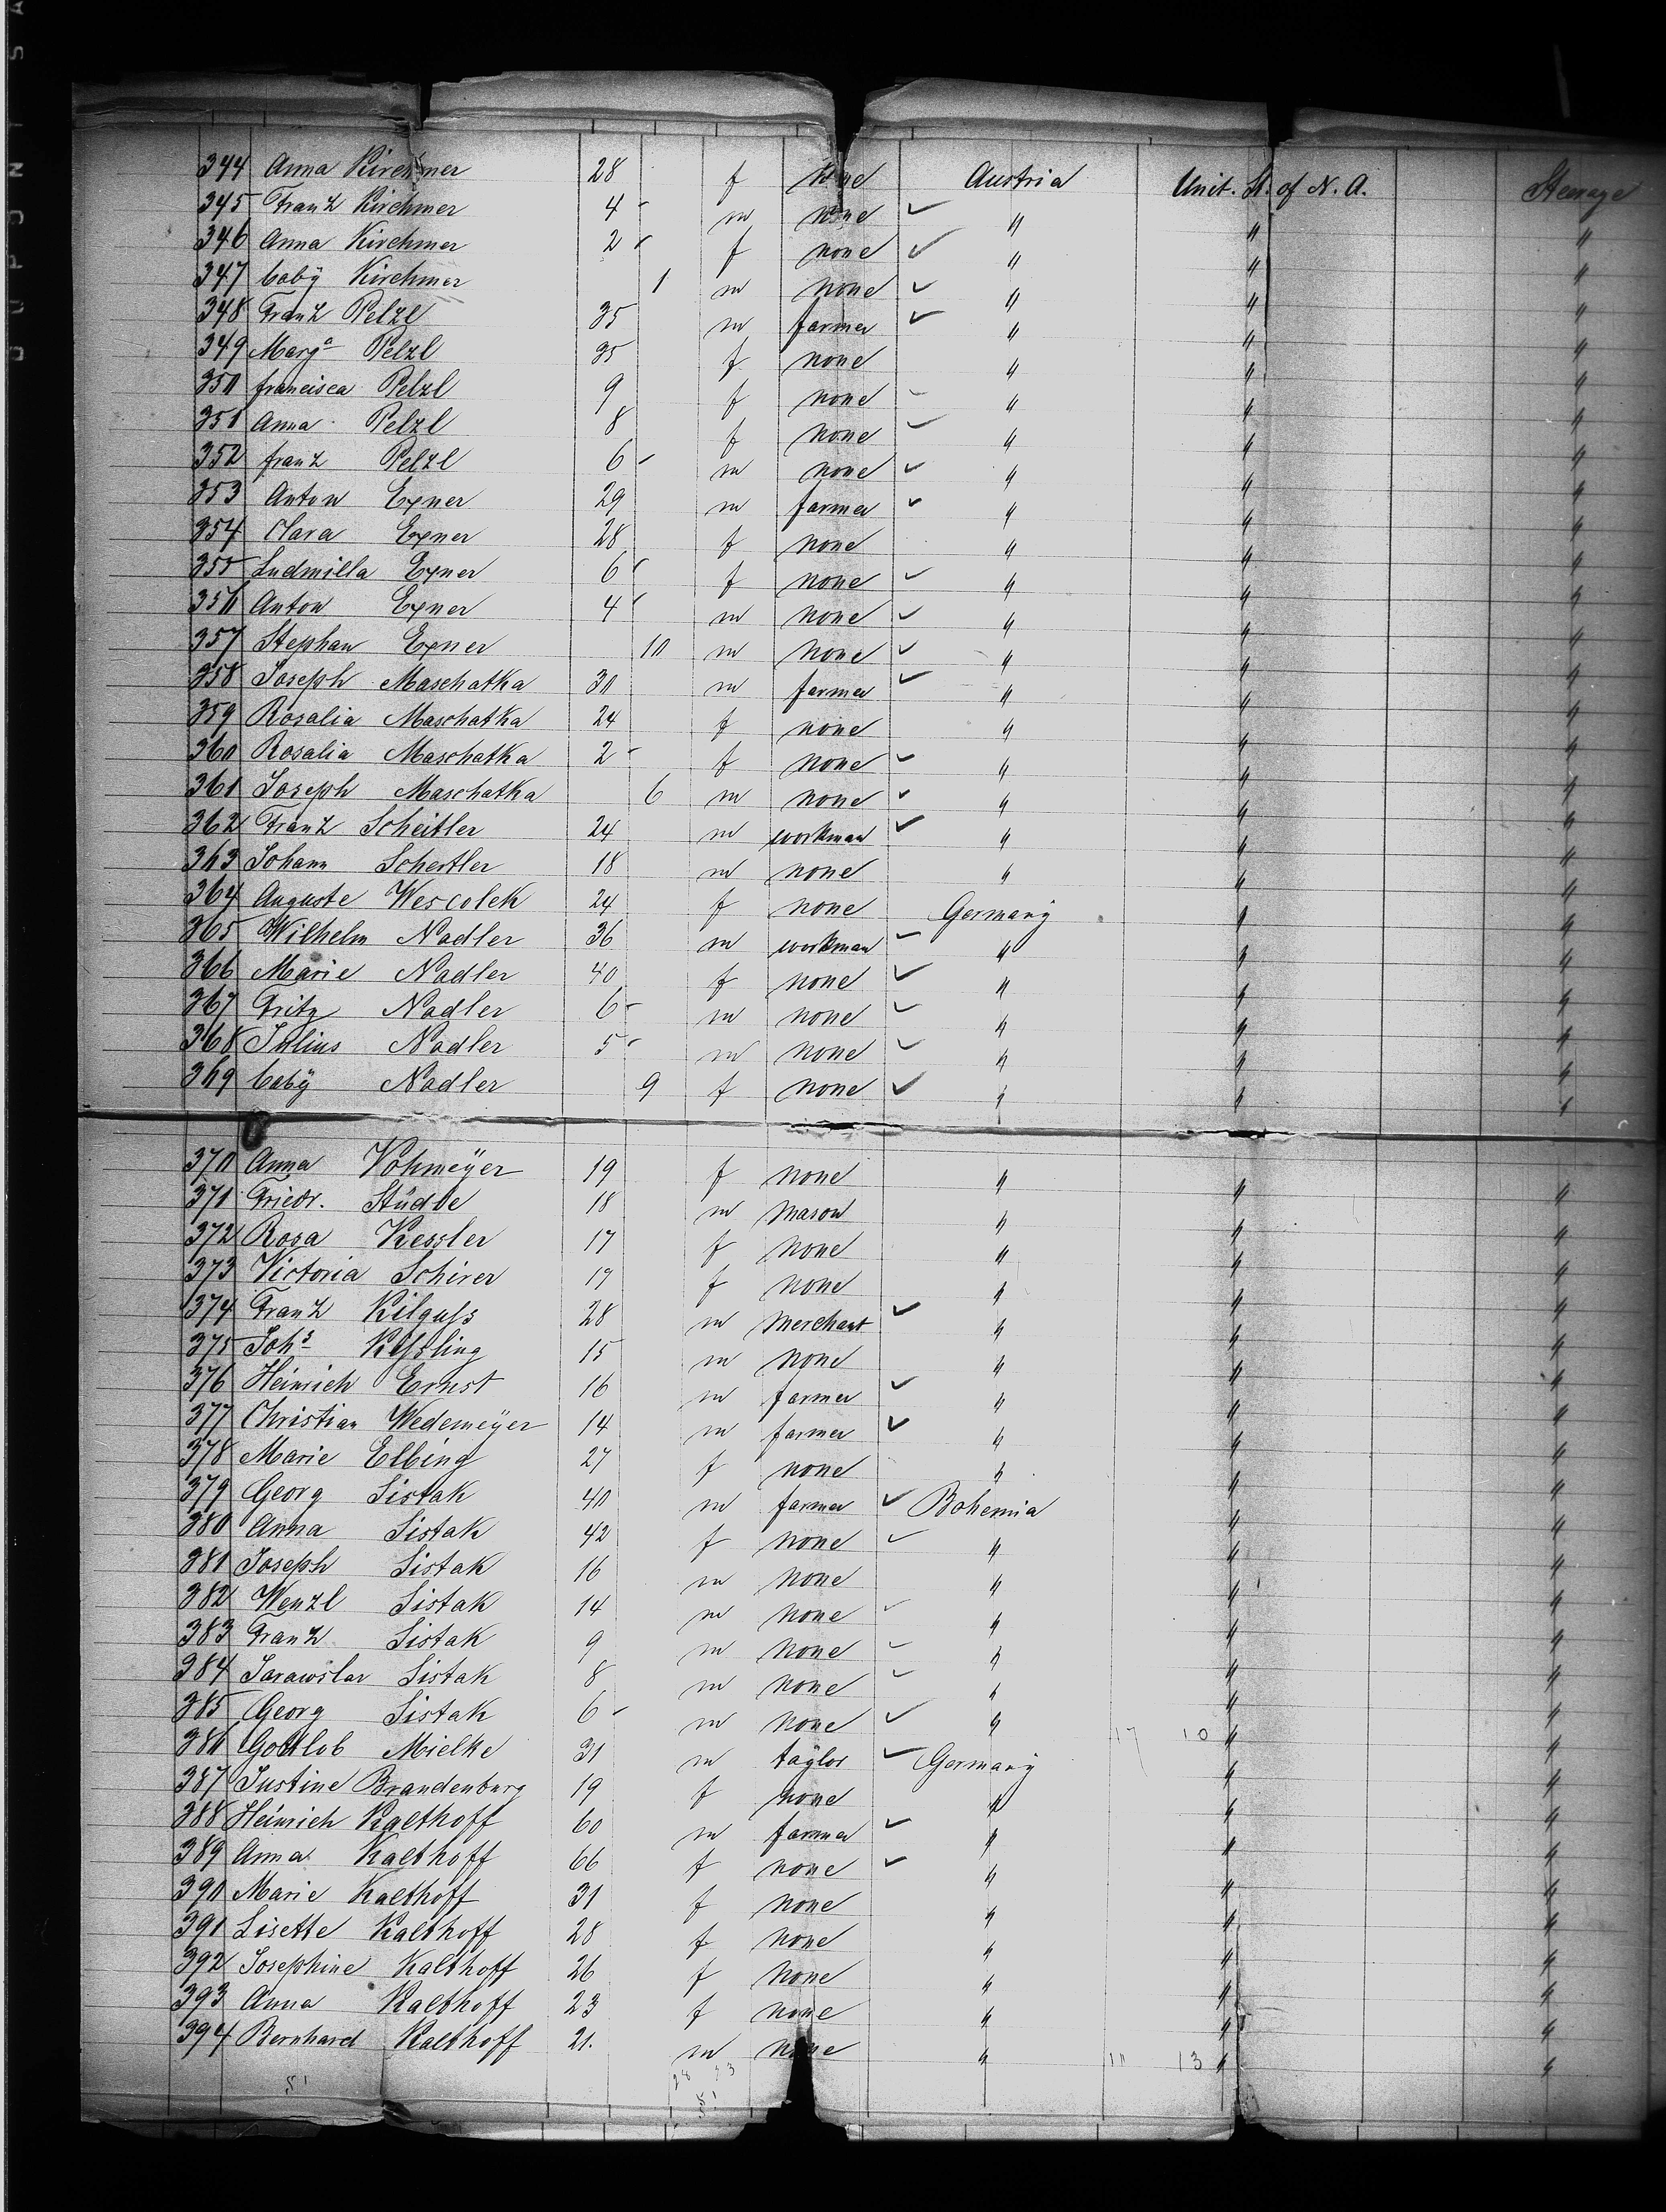 344 Anna Kirchmer 28 f none Austria Unit. St. of N. A. Steerage
345 Franz Kirchmer 4 m none " " "
346 Anna Kirchmer 2 f none " " "
347 baby Kirchmer 1 m none " " "
348 Franz Pelzl 35 m farmer " " "
349 Marga Pelzl 35 f none " " "
350 francisca Pelzl 9 f none " " "
351 Anna Pelzl 8 f none " " "
352 franz Pelzl 6 m none " " "
353 Anton Exner 29 m farmer " " "
354 Clara Exner 28 f none " " "
355 Ludmilla Exner 6 f none " " "
356 Anton Exner 4 m none " " "
357 Stephan Exner 10 m none " " "
358 Joseph Maschatka 30 m farmer " " "
359 Rosalia Maschatka 24 f none " " "
360 Rosalia Maschatka 2 f none " " "
361 Joseph Maschatka 6 m none " " "
362 Franz Scheitler 24 m workman " " "
363 Johann Schertler 18 m none " " "
364 Auguste Wescolek 24 f none Germany " "
365 Wilhelm Nadler 36 m workman " " "
366 Marie Nadler 40 f none " " "
367 Fritz Nadler 6 m none " " "
368 Julius Nadler 5 m none " " "
369 baby Nadler 9 f none " " "
370 Anna Vohmeÿer 19 f none " " "
371 Friedr. Stüdbe 18 m mason " " "
372 Rosa Kessler 17 f none " " "
373 Victoria Schirer 17 f none " " "
374 Franz Kilguss 28 m merchant " " "
375 Johs Kessling 15 m none " " "
376 Heinrich Ernst 16 m farmer " " "
377 Christian Wedemeÿer 14 m farmer " " "
378 Marie Elbing 27 f none " " "
379 Georg Sistak 40 m farmer Bohemia " "
380 Anna Sistak 42 f none " " "
381 Joseph Sistak 16 m none " " "
382 Wenzl Sistak 14 m none " " "
383 Franz Sistak 9 m none " " "
384 Jarawslar Sistak 8 m none " " "
385 Georg Sistak 6 m none " " "
386 Gottlob Mielke 31 m taÿlor Germany 17 10 " "
387 Justine Brandenburg 19 f none " " "
388 Heinrich Kalthoff 60 m farmer " " "
389 Anna Kalthoff 66 f none " " "
390 Marie Kalthoff 31 f none " " "
391 Lisette Kalthoff 28 f none " " "
392 Josephine Kalthoff 26 f none " " "
393 Anna Kalthoff 23 f none " " "
394 Bernhard Kalthoff 21. m none " 11 13 " "
51 28 23
51